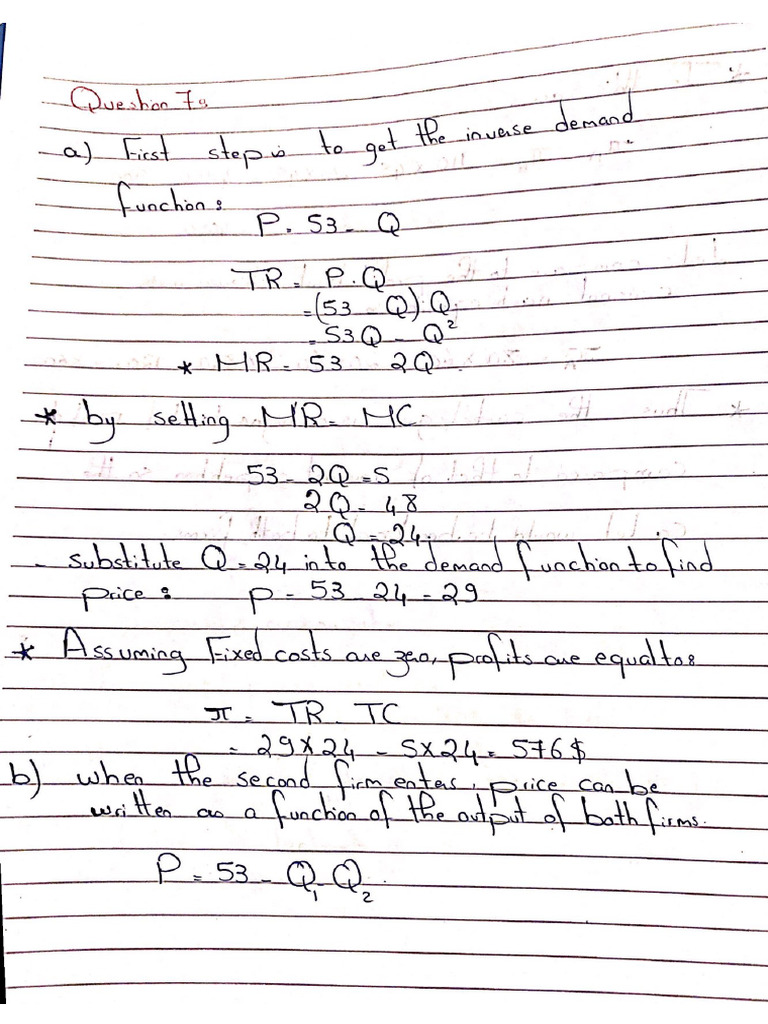 Question 7:
a) First step is to get the inverse demand
function:
P = 53 - Q
TR = P.Q
= (53 - Q) Q
= 53Q - Q²
* MR = 53 - 2Q
* by setting MR = MC.
53 - 2Q = 5
2Q = 48
Q = 24.
- substitute Q = 24 into the demand function to find
price: p = 53 - 24 = 29
* Assuming Fixed costs are zero, profits are equal to:
π = TR - TC
= 29 x 24 - 5 x 24 = 576 $
b) when the second firm enters, price can be
written as a function of the output of both firms.
P = 53 - Q₁ - Q₂